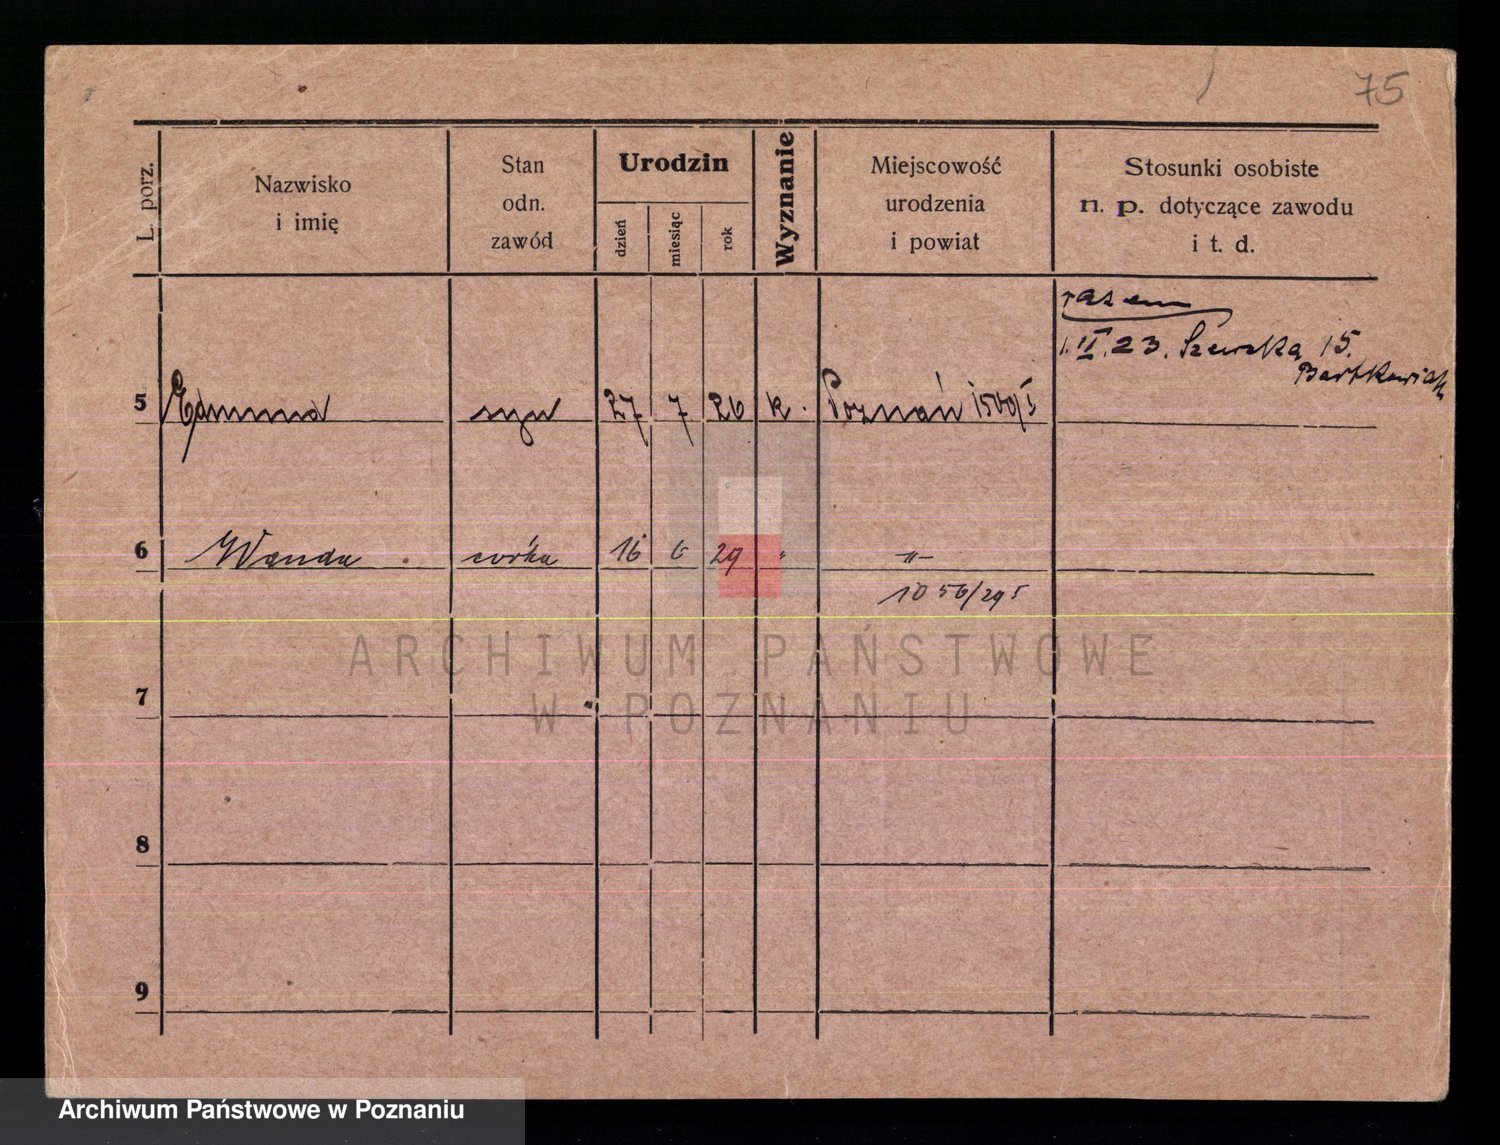 75
L. porz.
Nazwisko
i imię
Stan
odn.
zawód
Urodzin
dzień
miesiąc
rok
Wyznanie
Miejscowość
urodzenia
i powiat
Stosunki osobiste
n. p. dotyczące zawodu
i t. d.
razem
1.II.23. Szewska 15.
Bartkowiak
5 Edmund syn 27 7 26 k. Poznań 1500/I
6 Wanda córka 16 6 29 " -"-
1056/29 I
ARCHIWUM PAŃSTWOWE
W POZNANIU
7
8
9
Archiwum Państwowe w Poznaniu